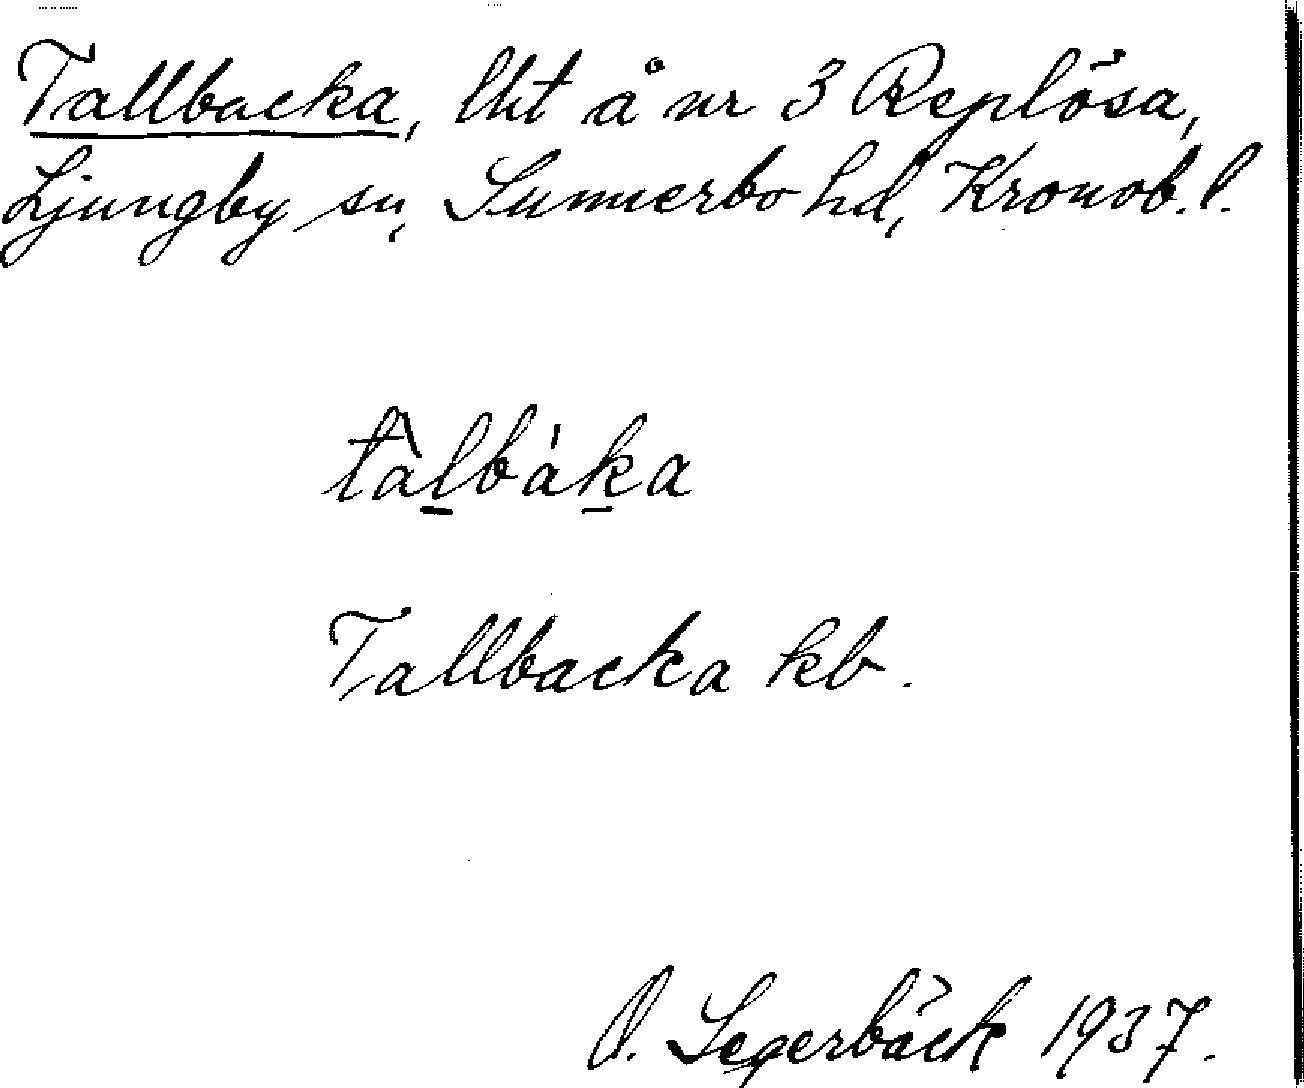 Tallbacka, lht å nr 3 Replösa,
Ljungby sn, Sunnerbo hd, Kronob. l.
tàlbáka
Tallbacka kb.
Segerbäck 1937.